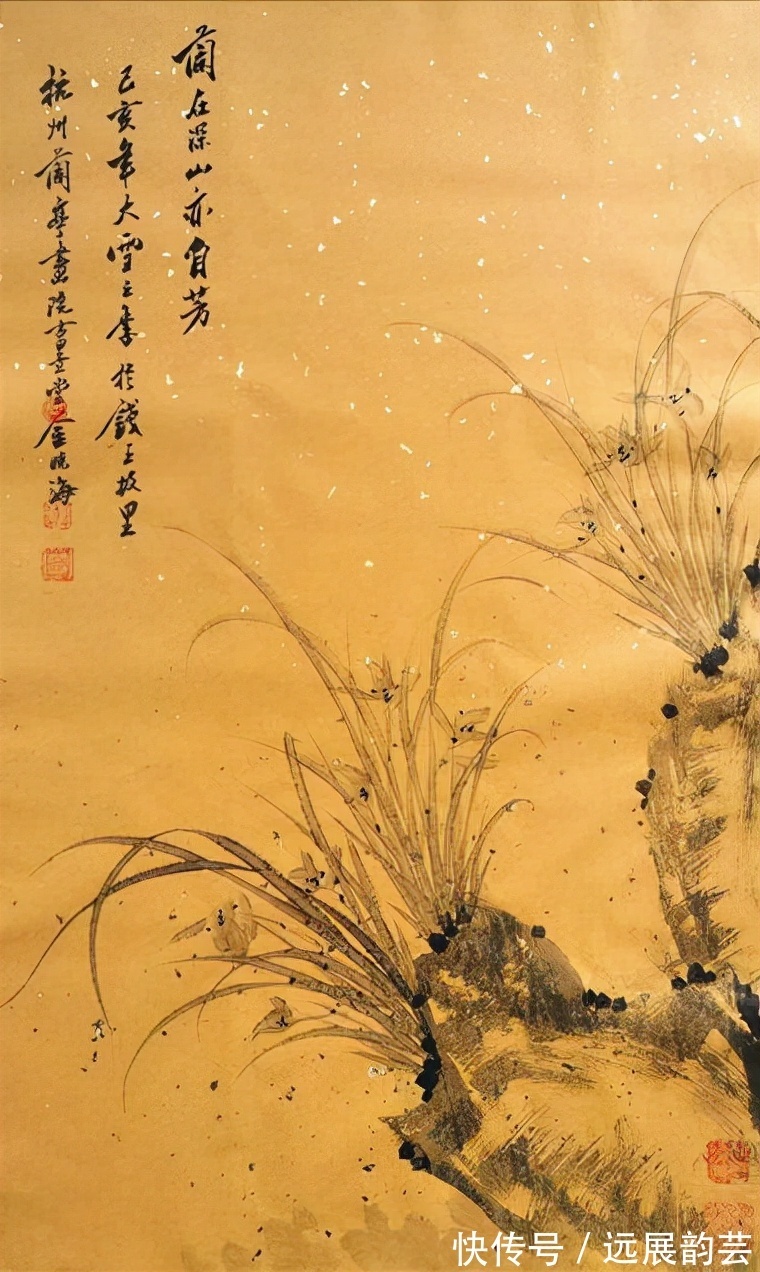 蘭在深山亦自芳
己亥年大雪之季於錢王故里
杭州蘭亭畫院堂金曉海
快传号 / 远展韵芸